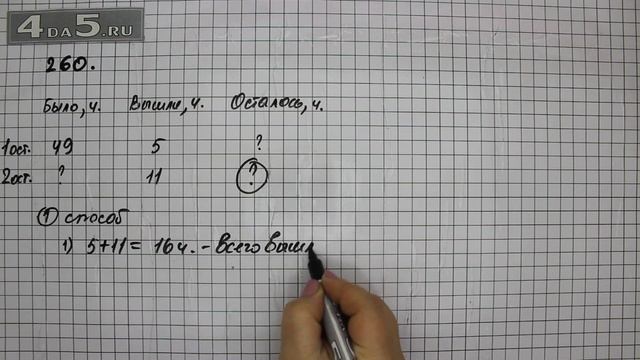 4DA5.RU
260.
Было, ч. Вышли, ч. Осталось, ч.
1ост. 49 5 ?
2ост. ? 11 ?
1 способ
1) 5+11= 16ч. - Всего выш